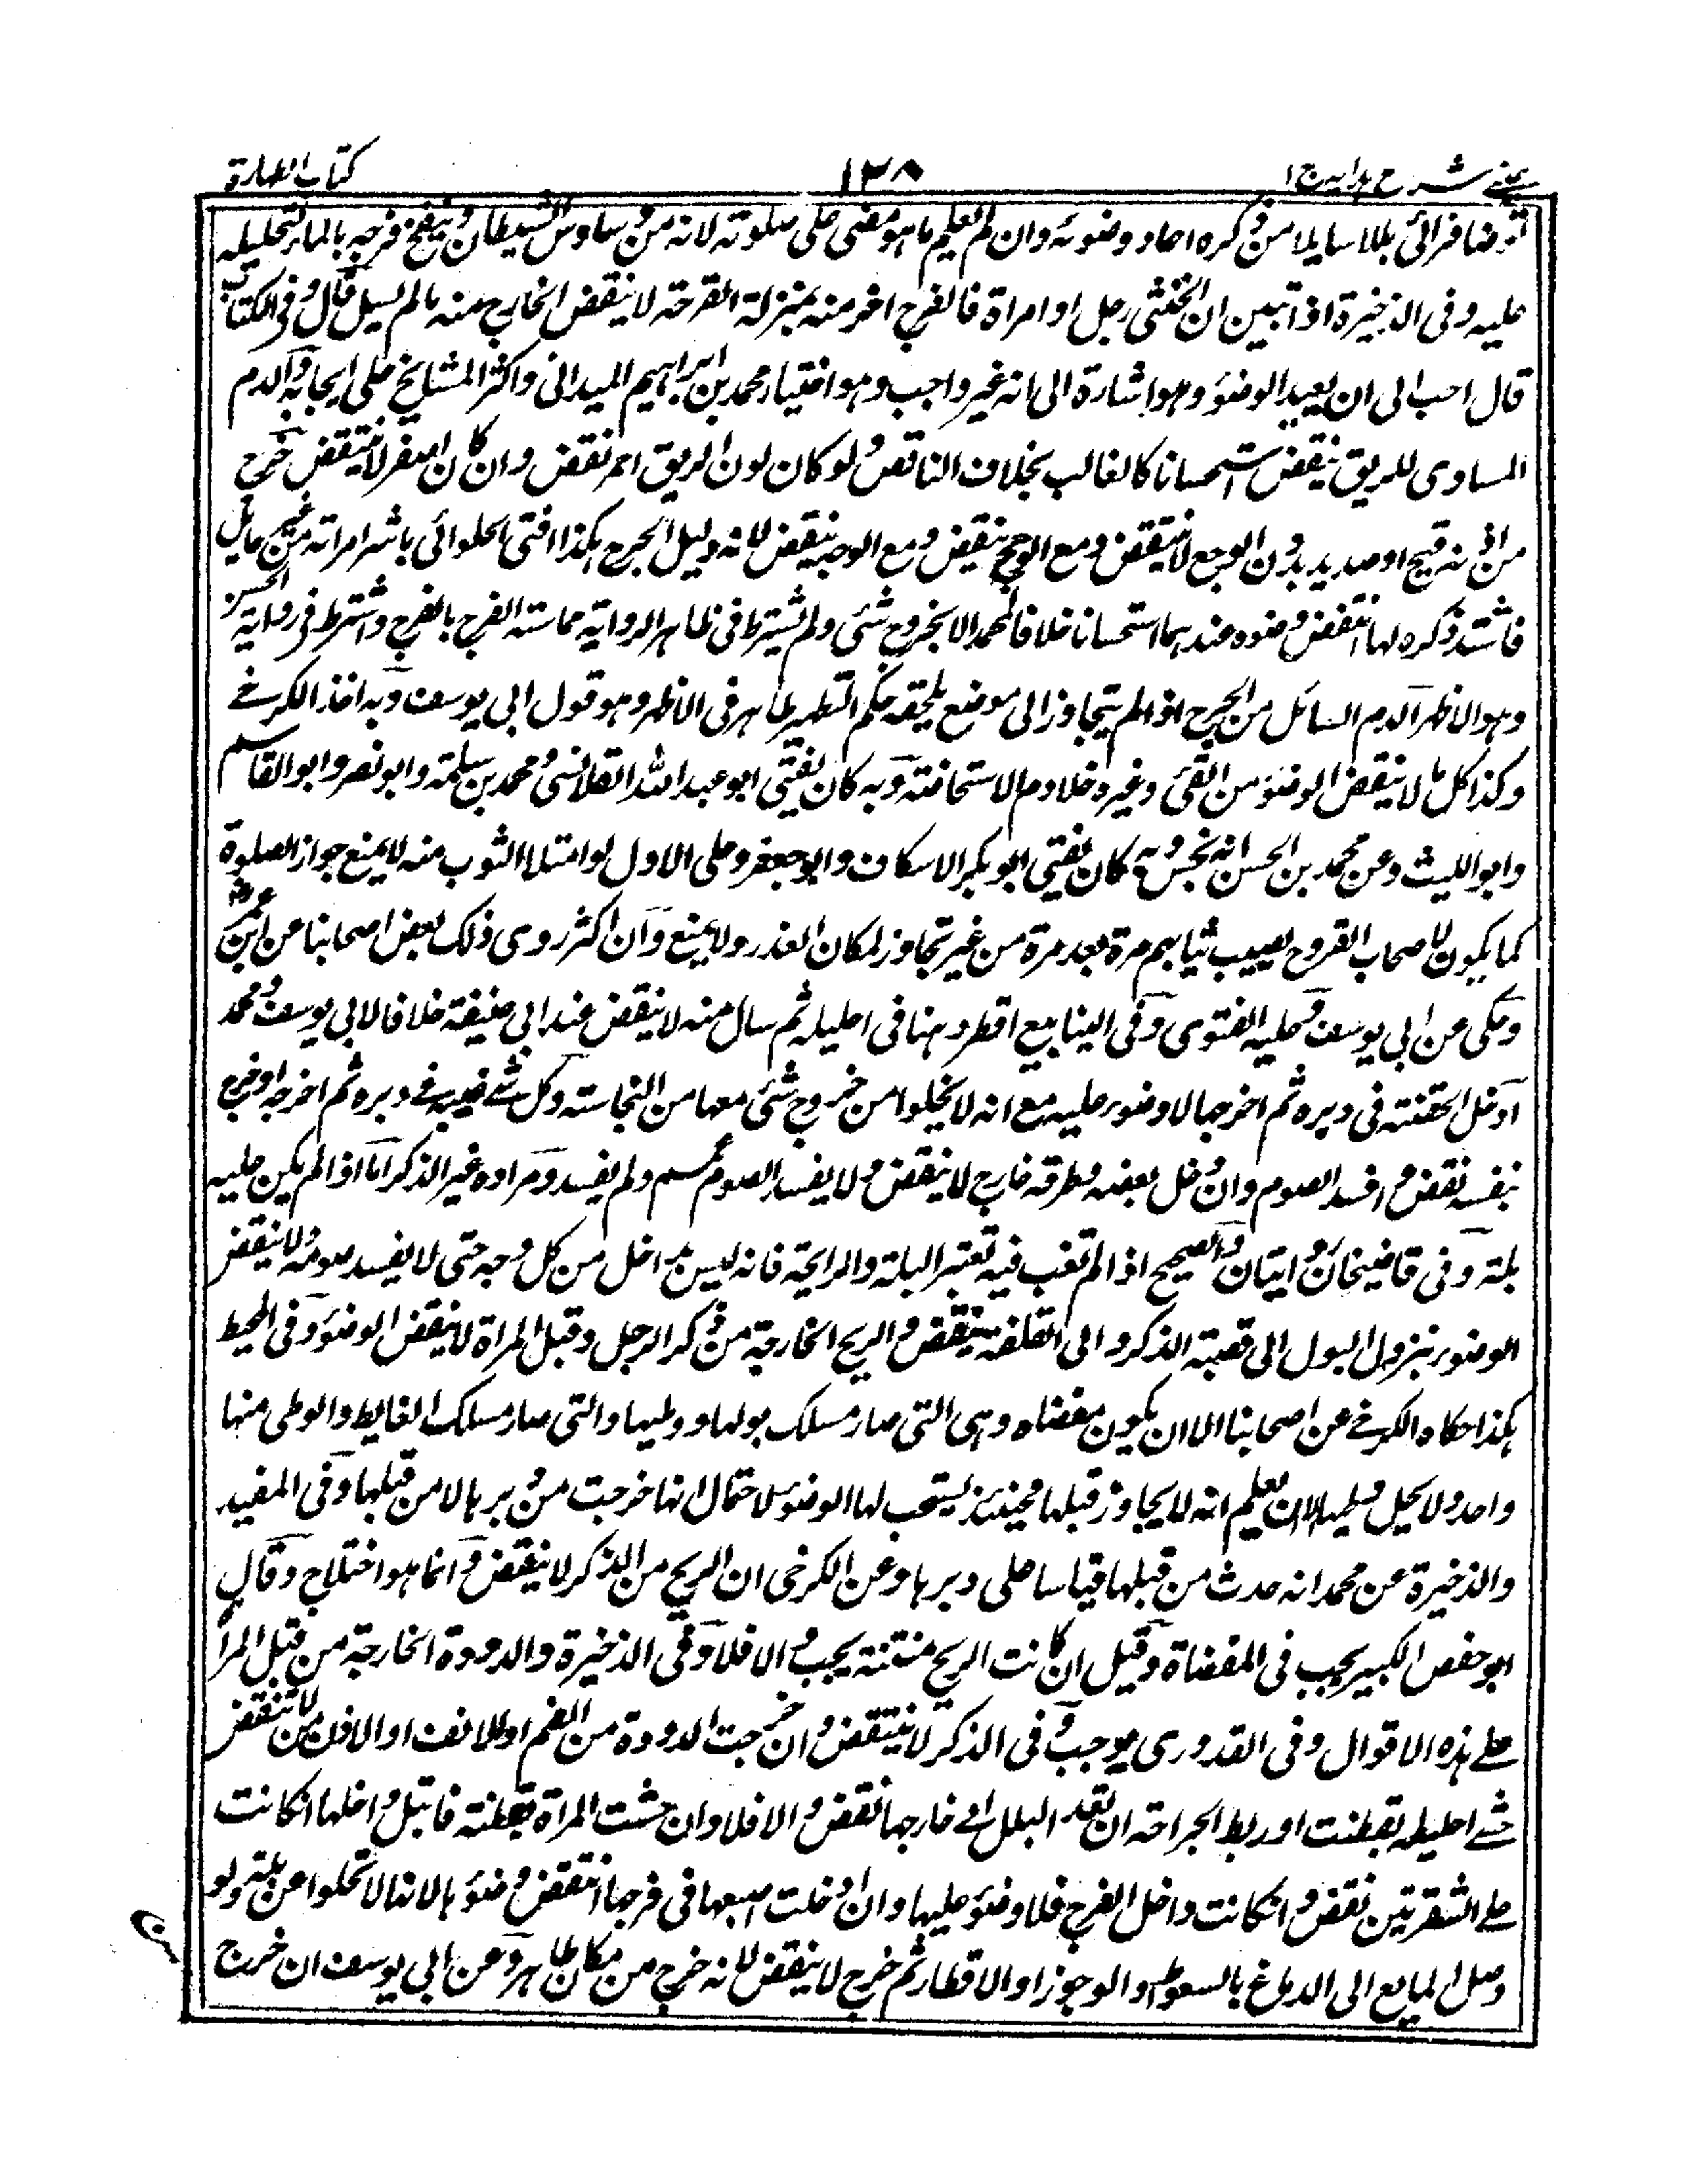 عيني شرح هدايه ج ١ ١٢٨ كتاب الطهارة
توضا فرائ بللا سايلا من ذكره اعاد وضوئه وان لم يعلم ما هو مضى على صلوته لانه من وساوس الشيطان وينضح فرجه بالماء لتحليله
عليه وفى الذخيرة اذا تبين ان الخنثى رجل او امراة فالفرج اخر منه بمنزلة القرحة لا ينقض الخارج منه مالم يسل قال وفى الكتاب
قال احب الى ان يعيد الوضؤ وهو اشارة الى انه غير واجب وهو اختيار محمد بن ابراهيم الميدانى واكثر المشايخ على ايجابه والدم
المساوى للريق ينقض استحسانا كالغالب بخلاف الناقص ولو كان لون الريق احمر نقض وان كان اصفر لا ينتقض خرج
من اذنه قيح او صديد بدون الوجع لا ينتقض ومع الوجع ينقض ومع الوجيه ينقض لانه دليل الجرح هكذا افتى الحلوائى باشر امراته من غير حايل
فاشتد ذكره لها انتقض وضوه عندهما استحسانا خلافا لمحمد الا بخروج شئ ولم يشترط فى ظاهر الرواية مماسته الفرج بالفرج واشترط فى رواية الحسن
وهو الاظهر الدم السائل من الجرح اذا لم يتجاوز الى موضع يلحقه حكم التطهير طاهر فى الاظهر وهو قول ابى يوسف وبه اخذ الكرخے
وكذا كل ما لا ينقض الوضؤ من القئ وغيره خلا دم الاستحاضة وبه كان يفتى ابو عبد الله القلانسى ومحمد بن سلمة وابو نصر وابو القاسم
وابو الليث وعن محمد بن الحسن انه نجس وبه كان يفتى ابو بكر الاسكاف وابو جعفر وعلى الاول لو امتلا الثوب منه لا يمنع جواز الصلوة
كما يكون لاصحاب القروح يصيب ثيابهم مرة بعد مرة من غير تجاوز لمكان العذر ولا يمنع وان اكثر روى ذلك بعض اصحابنا عن ابن عمر
وحكى عن ابى يوسف وعليه الفتوى وفى الينابيع اقطر دهنا فى احليله ثم سال منه لا ينقض عند ابى حنيفة خلافا لابى يوسف ومحمد
ادخل الحقنة فى دبره ثم اخرجها لا وضوء عليه مع انه لا يخلوا من خروج شئ معها من النجاسته وكل شے غيبه فے دبره ثم اخرجه او خرج
بنفسه نقض وافسد الصوم وان دخل بعضه وطرفه خارج لا ينقض ولا يفسد الصوم ولم يفسد ومراده غير الذكر اما اذا لم يكن عليه
بلته وفى قاضيخان روايتان والصحيح اذا لم تغب فيه تعتبر البلة والرايحة فانه ليس بداخل من كل وجه حتى لا يفسد صومه ولا ينقض
الوضوء بنزول البول الى قصبة الذكر والى القلفة ينتقض والريح الخارجة من ذكر الرجل وقبل المراة لا ينقض الوضؤ وفى المحيط
هكذا حكاه الكرخے عن اصحابنا الا ان يكون مفضاه وهى التى صار مسلك بولها ووطيها والتى صار مسلك الغايط والوطى منها
واحد ولا يحل وطيها الا ان يعلم انه لا يجاوز قبلها فحينئذ يستحب لها الوضؤ لاحتمال انها خرجت من دبرها لا من قبلها وفى المفيد
والذخيرة عن محمد انه حدث من قبلها قياسا على دبرها وعن الكرخى ان الريح من الذكر لا ينقض وانما هو اختلاج وقال
ابو حفص الكبير يجب فى المفضاة وقيل ان كانت الريح منتنة يجب والا فلا وفى الذخيرة والدودة الخارجة من قبل المرا
علے هذه الاقوال وفى القدورى يوجب وفى الذكر لا ينتقض وان خرجت الدودة من الفم او الانف او الاذن لا ينتقض
حشے احليله بقطنت او ربط الجراحته ان نفذ البلل الے خارجها نقض والا فلا وان حشت المراة بقطنة فابتل داخلها انكانت
علے الشفرتين نقض وانكانت داخل الفرج فلا وضؤ عليها وان ادخلت اصبعها فى فرجها انتقض وضؤها لانها لا تخلوا عن بلة ولو
وصل المايع الى الدماغ بالسعوط والوجوز او الاقطار ثم خرج لا ينقض لانه خرج من مكان طاهر وعن ابى يوسف ان خرج